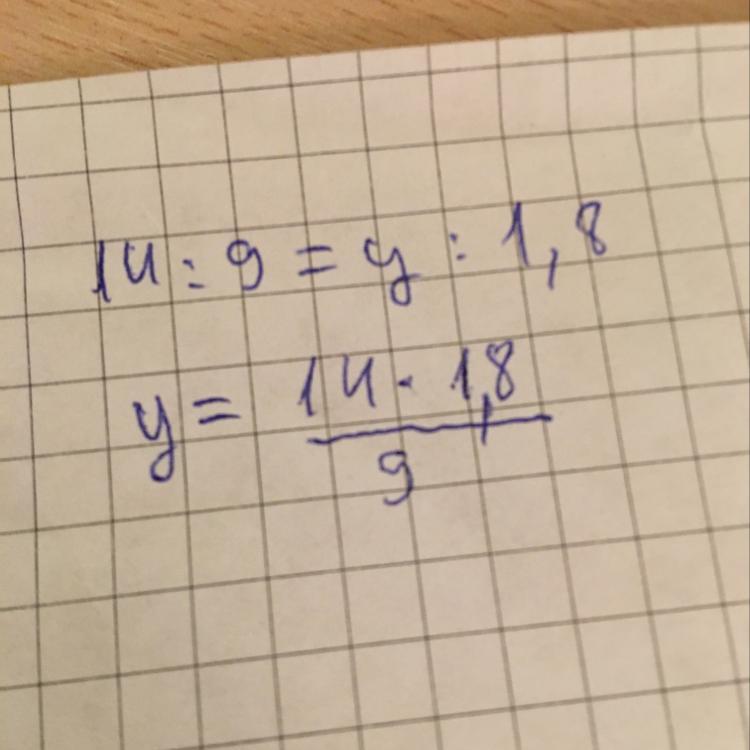 14 : 9 = y : 1,8
y = \frac{14 \cdot 1,8}{9}